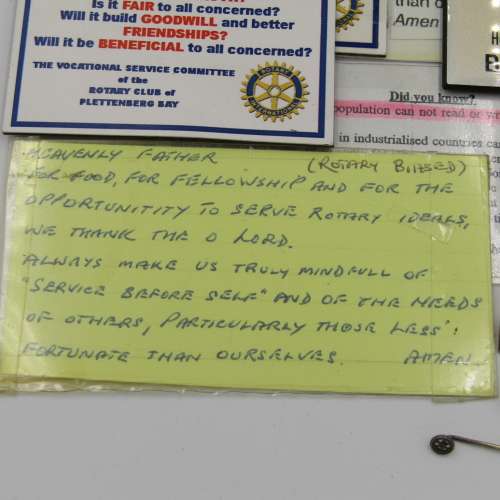 Is it FAIR to all concerned?
Will it build GOODWILL and better
FRIENDSHIPS?
Will it be BENEFICIAL to all concerned?
THE VOCATIONAL SERVICE COMMITTEE
of the
ROTARY CLUB of
PLETTENBERG BAY
Amen
Did you know?
population can not read or
in industrialised countries
HEAVENLY FATHER (ROTARY BIASED)
FOR FOOD, FOR FELLOWSHIP AND FOR THE
OPPORTUNITITY TO SERVE ROTARY IDEALS,
WE THANK THE O LORD.
ALWAYS MAKE US TRULY MINDFULL OF
"SERVICE BEFORE SELF" AND OF THE NEEDS
OF OTHERS, PARTICULARLY THOSE LESS
FORTUNATE THAN OURSELVES. AMEN